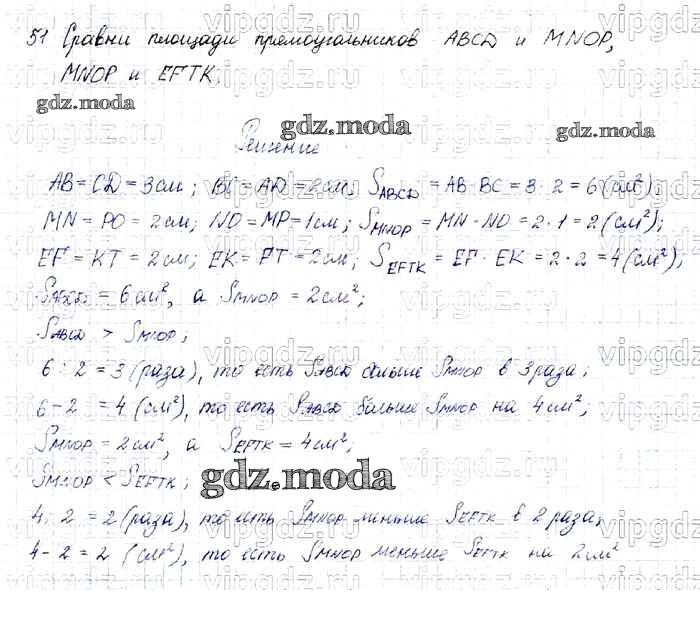 51 Сравни площади прямоугольников ABCD и MNOP,
MNOP и EFTK.
gdz.moda
gdz.moda
gdz.moda
Решение
AB = CD = 3 см; BC = AD = 2 см; S ABCD = AB · BC = 3 · 2 = 6 (см²);
MN = PO = 2 см; NO = MP = 1 см; S MNOP = MN · NO = 2 · 1 = 2 (см²);
EF = KT = 2 см; EK = FT = 2 см; S EFTK = EF · EK = 2 · 2 = 4 (см²);
S ABCD = 6 см², а S MNOP = 2 см²;
S ABCD > S MNOP;
6 : 2 = 3 (раза), то есть S ABCD больше S MNOP в 3 раза;
6 - 2 = 4 (см²), то есть S ABCD больше S MNOP на 4 см²;
S MNOP = 2 см², а S EFTK = 4 см²;
S MNOP < S EFTK;
gdz.moda
4 : 2 = 2 (раза), то есть S MNOP меньше S EFTK в 2 раза;
4 - 2 = 2 (см²), то есть S MNOP меньше S EFTK на 2 см²